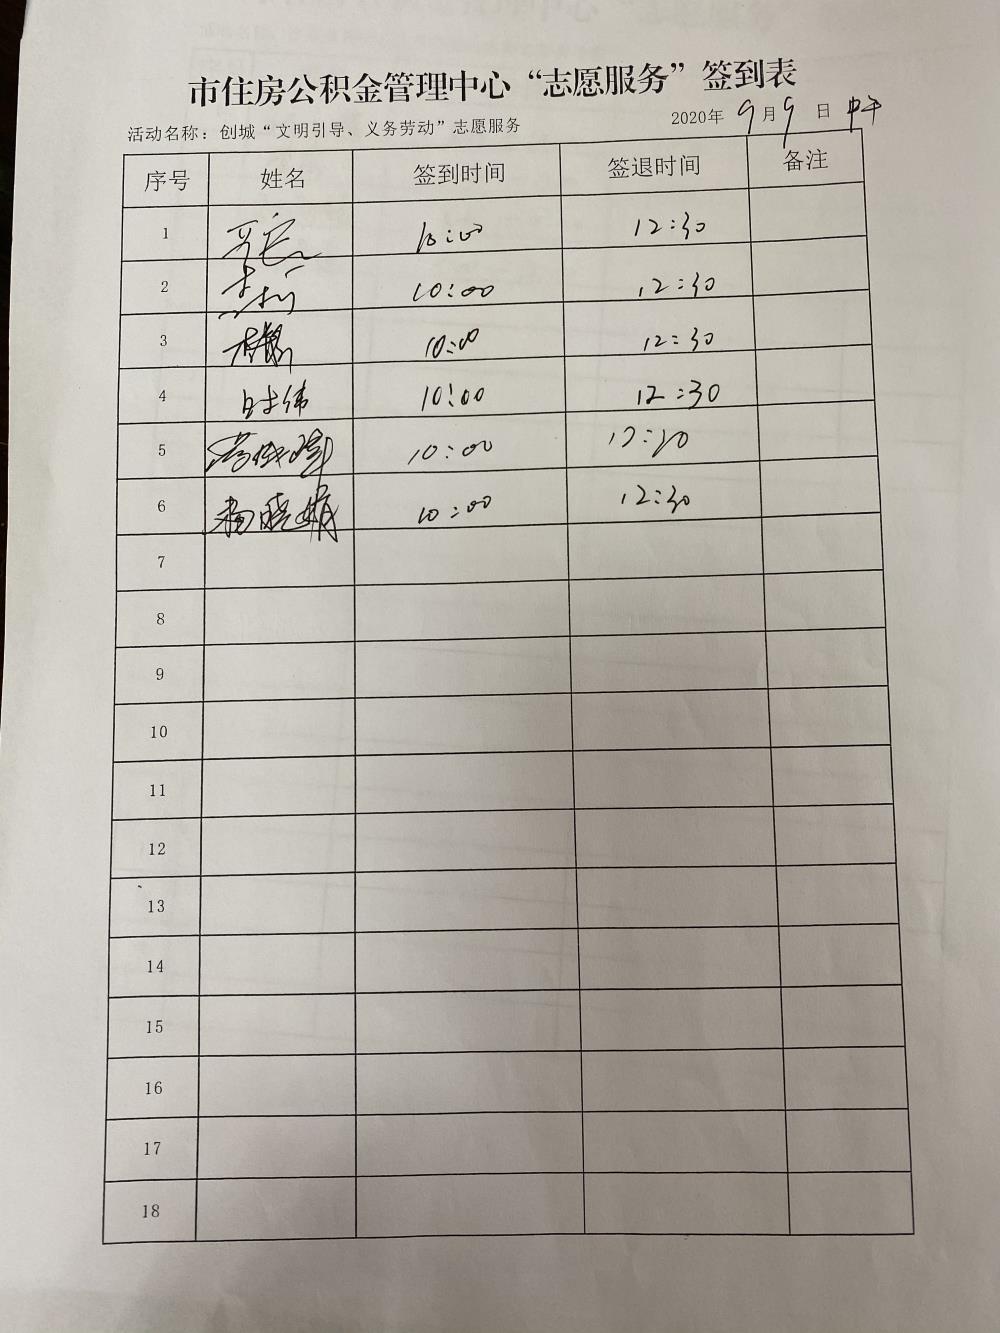 市住房公积金管理中心“志愿服务”签到表
活动名称：创城“文明引导、义务劳动”志愿服务 2020年 9 月 9 日 中午
序号 姓名 签到时间 签退时间 备注
1 10:00 12:30
2 10:00 12:30
3 10:00 12:30
4 10:00 12:30
5 10:00
6 杨晓娟 10:00 12:30
7
8
9
10
11
12
13
14
15
16
17
18